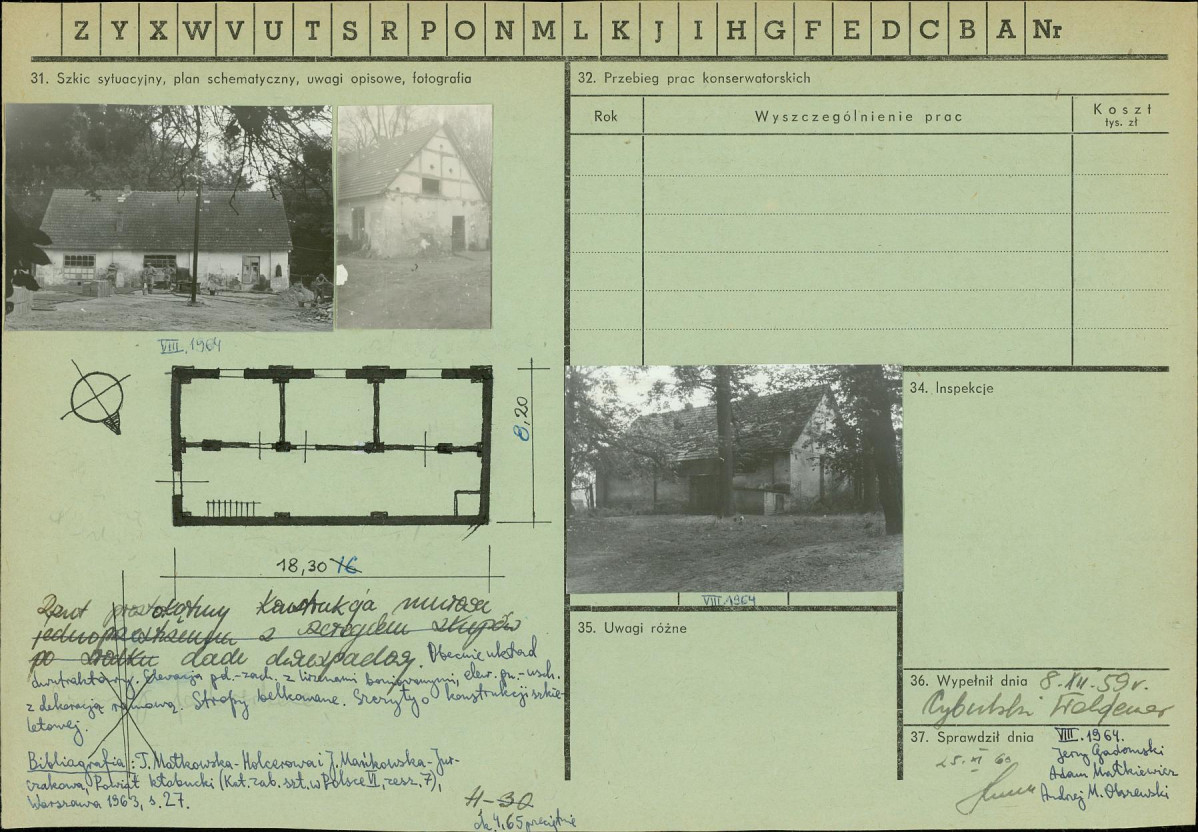 Z Y X W V U T S R P O N M L K J I H G F E D C B A Nr
31. Szkic sytuacyjny, plan schematyczny, uwagi opisowe, fotografia
VIII. 1964
8,20
18,30 16
Rzut prostokątny Konstrukcja murowa
jednoprzestrzenny z szeregiem słupów
po środku dach dwuspadowy. Obecnie układ
dwutraktowy. Elewacja pd.-zach. z lizenami boniowanymi, elew. pn.-wsch.
z dekoracją ramową. Stropy belkowane. Szczyty o konstrukcji szkie-
letowej.
Bibliografia: T. Małkowska-Holcerowa i J. Mańkowska-Jur-
czakowa, Powiat kłobucki (Kat. zab. szt. w Polsce VI, zesz. 7),
Warszawa 1963, s. 27.
H-30
4,65 przeciętnie
32. Przebieg prac konserwatorskich
Rok Wyszczególnienie prac Koszt
tys. zł
VIII 1964
34. Inspekcje
35. Uwagi różne
36. Wypełnił dnia 8.XII.59 r.
Cybulski Waldemar
37. Sprawdził dnia VIII. 1964.
Jerzy Gadomski
Adam Małkiewicz
Andrzej M. Olszewski